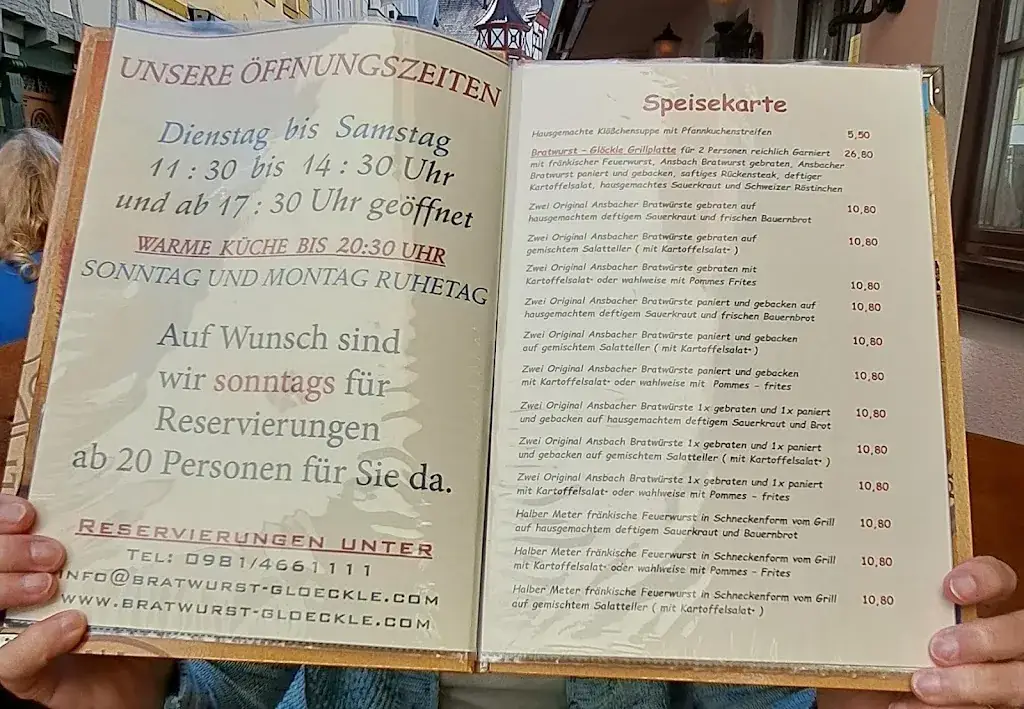 UNSERE ÖFFNUNGSZEITEN
Dienstag bis Samstag
11 : 30 bis 14 : 30 Uhr
und ab 17 : 30 Uhr geöffnet
WARME KÜCHE BIS 20:30 UHR
SONNTAG UND MONTAG RUHETAG
Auf Wunsch sind
wir sonntags für
Reservierungen
ab 20 Personen für Sie da.
RESERVIERUNGEN UNTER
TEL: 0981/4661111
INFO@BRATWURST-GLOECKLE.COM
WWW.BRATWURST-GLOECKLE.COM
Speisekarte
Hausgemachte Klößchensuppe mit Pfannkuchenstreifen 5,50
Bratwurst - Glöckle Grillplatte für 2 Personen reichlich Garniert 26,80
mit fränkischer Feuerwurst, Ansbach Bratwurst gebraten, Ansbacher
Bratwurst paniert und gebacken, saftiges Rückensteak, deftiger
Kartoffelsalat, hausgemachtes Sauerkraut und Schweizer Röstinchen
Zwei Original Ansbacher Bratwürste gebraten auf 10,80
hausgemachtem deftigem Sauerkraut und frischen Bauernbrot
Zwei Original Ansbacher Bratwürste gebraten auf 10,80
gemischtem Salatteller ( mit Kartoffelsalat* )
Zwei Original Ansbacher Bratwürste gebraten mit
Kartoffelsalat* oder wahlweise mit Pommes Frites 10,80
Zwei Original Ansbacher Bratwürste paniert und gebacken auf 10,80
hausgemachtem deftigem Sauerkraut und frischen Bauernbrot
Zwei Original Ansbacher Bratwürste paniert und gebacken 10,80
auf gemischtem Salatteller ( mit Kartoffelsalat* )
Zwei Original Ansbacher Bratwürste paniert und gebacken 10,80
mit Kartoffelsalat* oder wahlweise mit Pommes - frites
Zwei Original Ansbacher Bratwürste 1x gebraten und 1x paniert 10,80
und gebacken auf hausgemachtem deftigem Sauerkraut und Brot
Zwei Original Ansbach Bratwürste 1x gebraten und 1x paniert 10,80
und gebacken auf gemischtem Salatteller ( mit Kartoffelsalat* )
Zwei Original Ansbach Bratwürste 1x gebraten und 1x paniert 10,80
mit Kartoffelsalat* oder wahlweise mit Pommes - frites
Halber Meter fränkische Feuerwurst in Schneckenform vom Grill 10,80
auf hausgemachtem deftigem Sauerkraut und Bauernbrot
Halber Meter fränkische Feuerwurst in Schneckenform vom Grill 10,80
mit Kartoffelsalat* oder wahlweise mit Pommes - Frites
Halber Meter fränkische Feuerwurst in Schneckenform vom Grill 10,80
auf gemischtem Salatteller ( mit Kartoffelsalat* )